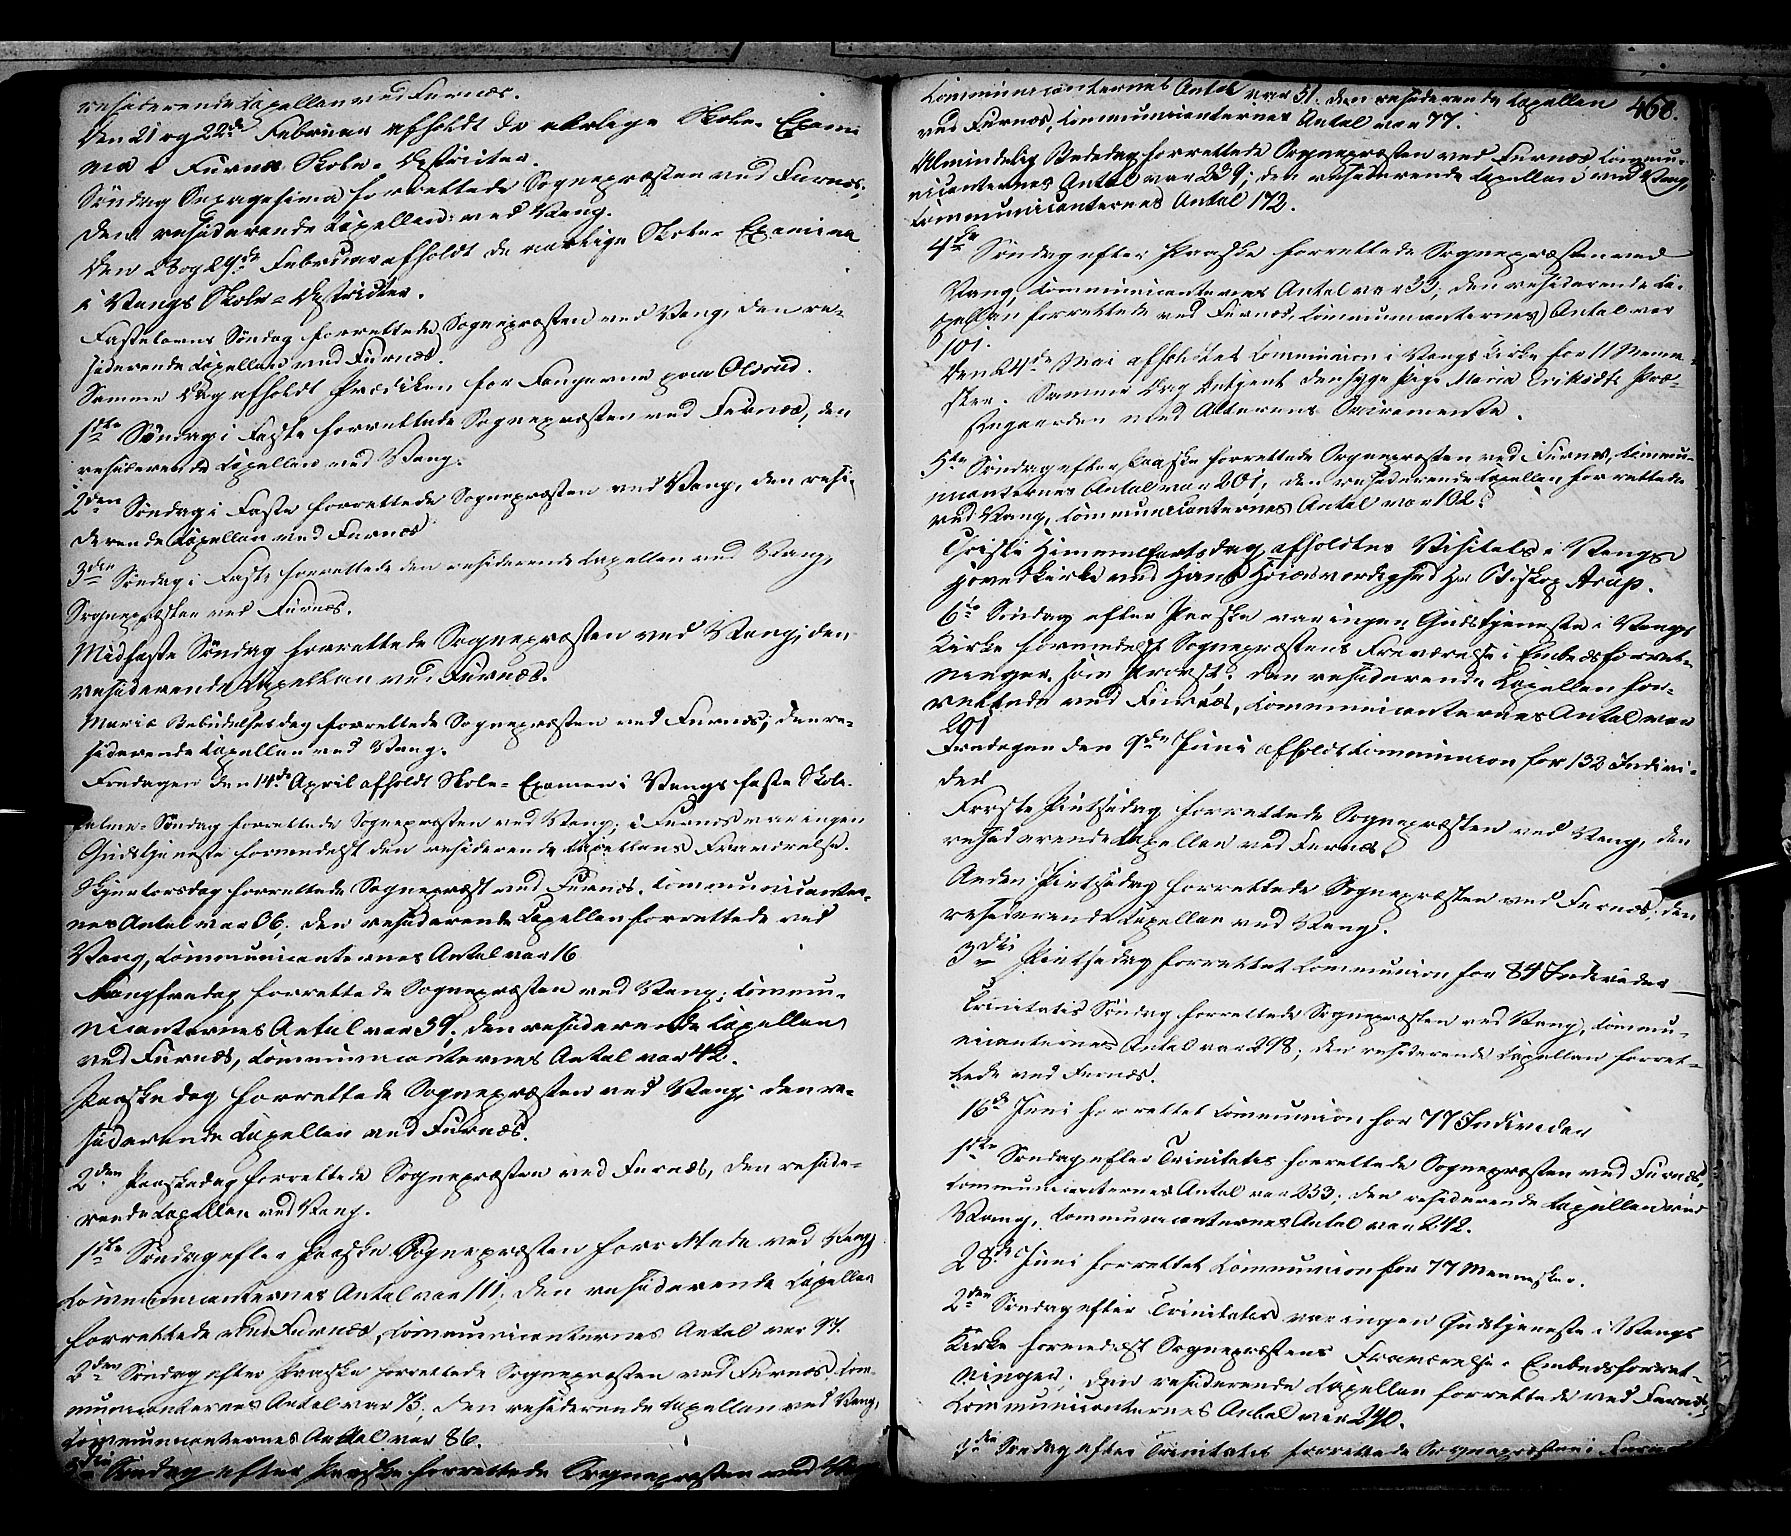 residerende Capellan ved Furnæs.
Den 21 og 22de Februar afholdt de aarlige Skole-Exami
na i Furnæs Skole-Districter.
Søndag Sexagesima forrettede Sognepræsten ved Furnæs;
den residerende Capellan ved Vang.
Den 28 og 29de Februar afholdt de aarlige Skole-Examina
i Vangs Skole-Districter.
Fastelavns Søndag forrettede Sognepræsten ved Vang, den re-
siderende Capellan ved Furnæs.
Samme Dag afholdt Prædiken for Fangerne paa
1ste Søndag i Faste forrettede Sognepræsten ved Furnæs, den
residerende Capellan ved Vang.
2den Søndag i Faste forrettede Sognepræsten ved Vang, den resi-
derende Capellan ved Furnæs
3die Søndag i Faste forrettede den residerende Capellan ved Vang,
Sognepræsten ved Furnæs.
Midfaste Søndag forrettede Sognepræsten ved Vang; den
residerende Capellan ved Furnæs.
Mariæ Bebudelsesdag forrettede Sognepræsten ved Furnæs; den re-
siderende Capellan ved Vang.
Fredagen den 14de April afholdt Skole-Examen i Vangs faste Skole.
Palme-Søndag forrettede Sognepræsten ved Vang; i Furnæs var ingen
Gudstjeneste formedelst den residerende Capellans Fraværelse.
Skjærtorsdag forrettede Sognepræst ved Furnæs, Communicanter-
nes Antal var 36; den residerende Capellan forrettede ved
Vang, Communicanternes Antal var 16
Langfredag forrettede Sognepræsten ved Vang; Commu-
nicanternes Antal var 39; den residerende Capellan
ved Furnæs, Communicanternes Antal var 42.
Paaskedag forrettede Sognepræsten ved Vang; den re-
siderende Capellan ved Furnæs.
2den Paaskedag forrettede Sognepræsten ved Furnæs, den reside-
rende Capellan ved Vang.
1ste Søndag efter Paaske Sognepræsten forrettede ved Vang
Communicanternes Antal var 111; den residerende Capellan
forrettede ved Furnæs, Communicanternes Antal var 97.
2den Søndag efter Paaske forrettede Sognepræsten ved Furnæs Com-
municanternes Antal var 73; den residerende Capellan ved Vang,
Communicanternes Antal var 86.
3die Søndag efter Paaske forrettede Sognepræsten ved Vang
Communicanternes Antal var 51. den residerende Capellan 468.
ved Furnæs, Communicanternes Antal var 77.
Almindelig Bededag forrettede Sognepræsten ved Furnæs Commu-
nicanternes Antal var 239; den residerende Capellan ved Vang,
Communicanternes Antal 172.
4de Søndag efter Paaske forrettede Sognepræsten ved
Vang, Communicanternes Antal var 33; den residerende Ca-
pellan forrettede ved Furnæs, Communicanternes Antal var
101.
Den 24de Mai afholdtes Communion i Vangs Kirke for 11 Menne-
sker. Samme Dag betjent den syge Pige Maria Eriksdtr Præ-
stegaarden med Alterens Sacramente.
5te Søndag efter Paaske forrettede Sognepræsten ved Furnæs, Commu-
nicanternes Antal var 201; den residerende Capellan forrettede
ved Vang, Communicanternes Antal var 102.
Christi Himmelfartsdag afholdtes Visitats i Vangs
Hovedkirke ved Hans Høiærværdighed Hr Biskop Arup.
6te Søndag efter Paaske var ingen Gudstjeneste i Vangs
Kirke formedelst Sognepræstens Fraværelse i Embedsforret-
ninger som Provst. den residerende Capellan for-
rettede ved Furnæs, Communicanternes Antal var
291
Fredagen den 9de Juni afholdt Communion for 132 Indivi-
der
Første Pintsedag forrettede Sognepræsten ved Vang, den
residerende Capellan ved Furnæs.
Anden Pintsedag forrettede Sognepræsten ved Furnæs; den
residerende Capellan ved Vang.
3die Pintsedag forrettet Communion for 84 Individer
Trinitatis Søndag forrettede Sognepræsten ved Vang, Commu-
nicanternes Antal var 298; den residerende Capellan forret-
tede ved Furnæs.
16de Juni forrettet Communion for 77 Individer
1ste Søndag efter Trinitatis forrettede Sognepræsten ved Furnæs,
Communicanternes Antal var 233; den residerende Capellan ved
Vang, Communicanternes Antal var 242.
28de Juni forrettet Communion for 77 Mennesker.
2den Søndag efter Trinitatis var ingen Gudstjeneste i Vangs
Kirke formedelst Sognepræstens Fraværelse i Embedsforret-
ninger; den residerende Capellan forrettede ved Furnæs,
Communicanternes Antal var 240.
3die Søndag efter Trinitatis forrettede Sognepræsten i Furnæs